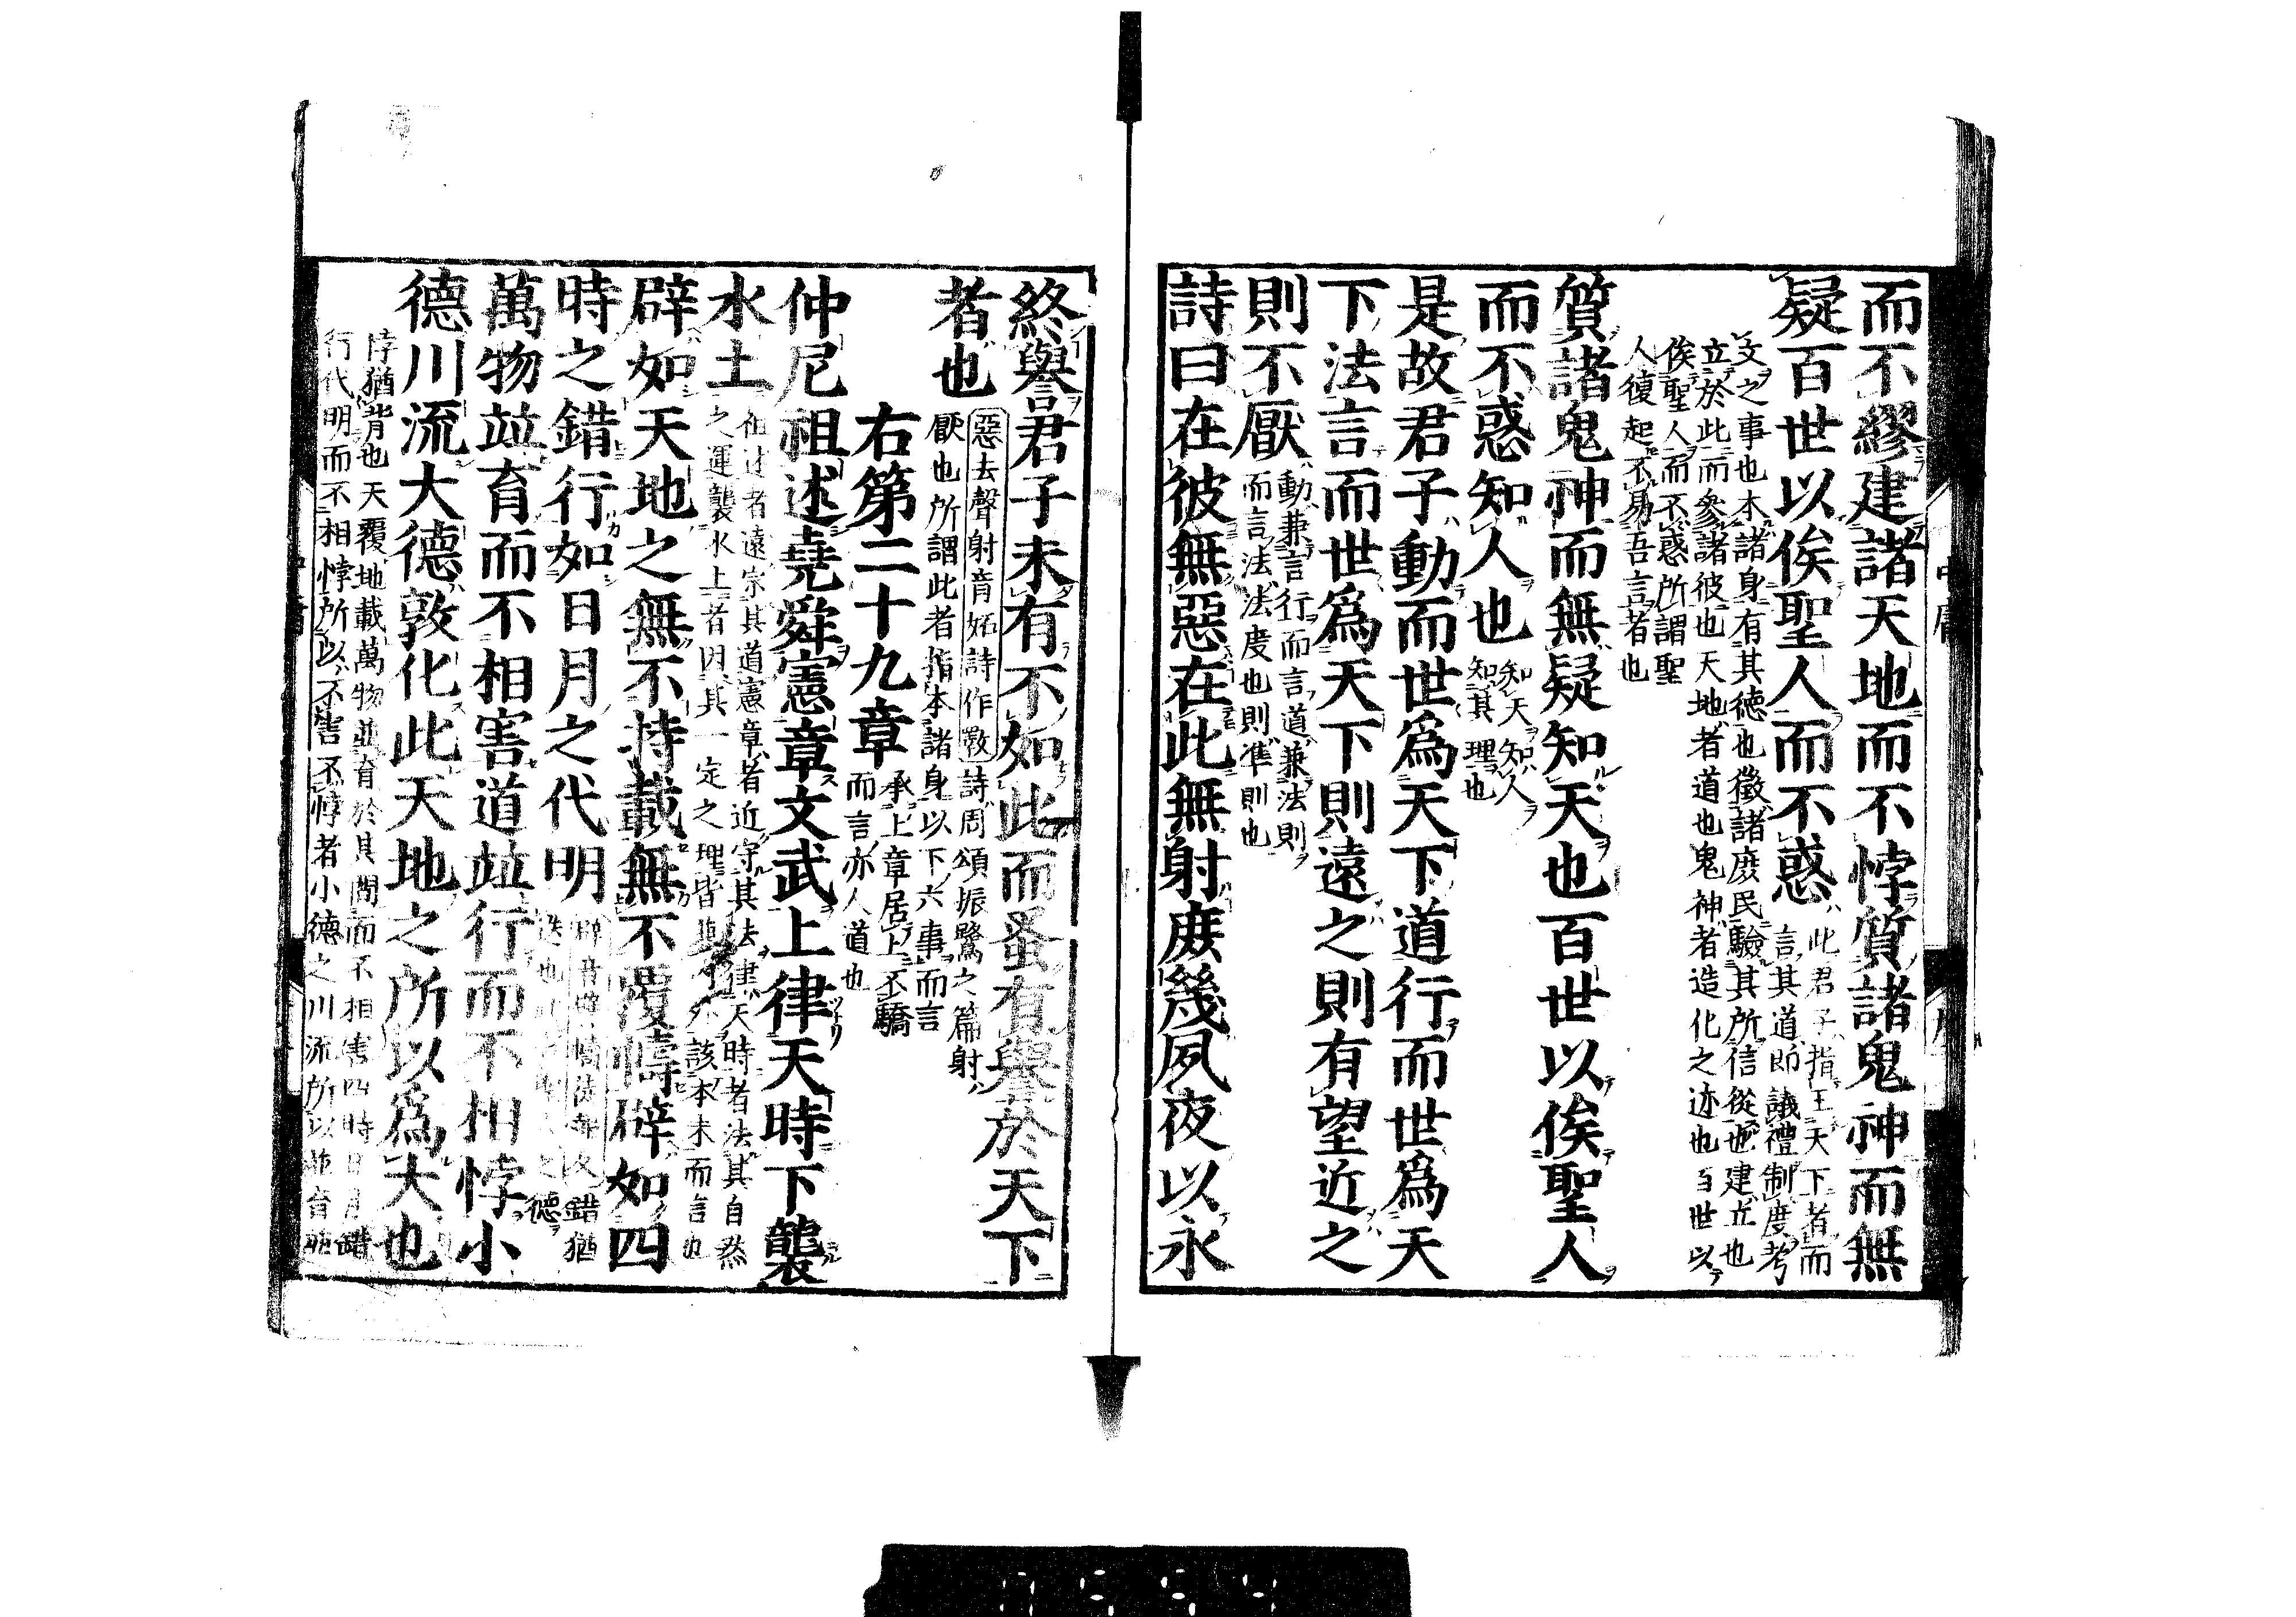 而不繆建諸天地而不悖質諸鬼神而無
疑百世以俟聖人而不惑
此君子指王天下者而
言其道即議禮制度考
文之事也本諸身有其德也徵諸庶民驗其所信從也建立也
立於此而參諸彼也天地者道也鬼神者造化之迹也百世以
俟聖人而不惑所謂聖
人復起不易吾言者也
質諸鬼神而無疑知天也百世以俟聖人
而不惑知人也
知天知人
知其理也
是故君子動而世爲天下道行而世爲天
下法言而世爲天下則遠之則有望近之
則不厭
動兼言行而言道兼法則
而言法法度也則準則也
詩曰在彼無惡在此無射庶幾夙夜以永
終譽君子未有不如此而蚤有譽於天下
者也
惡去聲射音妬詩作斁詩周頌振鷺之篇射
厭也所謂此者指本諸身以下六事而言
右第二十九章
承上章居上不驕
而言亦人道也
仲尼祖述堯舜憲章文武上律天時下襲
水土
祖述者遠宗其道憲章者近守其法律天時者法其自然
之運襲水土者因其一定之理皆兼內外該本末而言也
辟如天地之無不持載無不覆幬辟如四
時之錯行如日月之代明
錯猶
迭也 德
萬物竝育而不相害道竝行而不相悖小
德川流大德敦化此天地之所以爲大也
悖猶背也天覆地載萬物並育於其間而不相害四時日月錯
行代明而不相悖所以不害不悖者小德之川流所以並育並
中庸